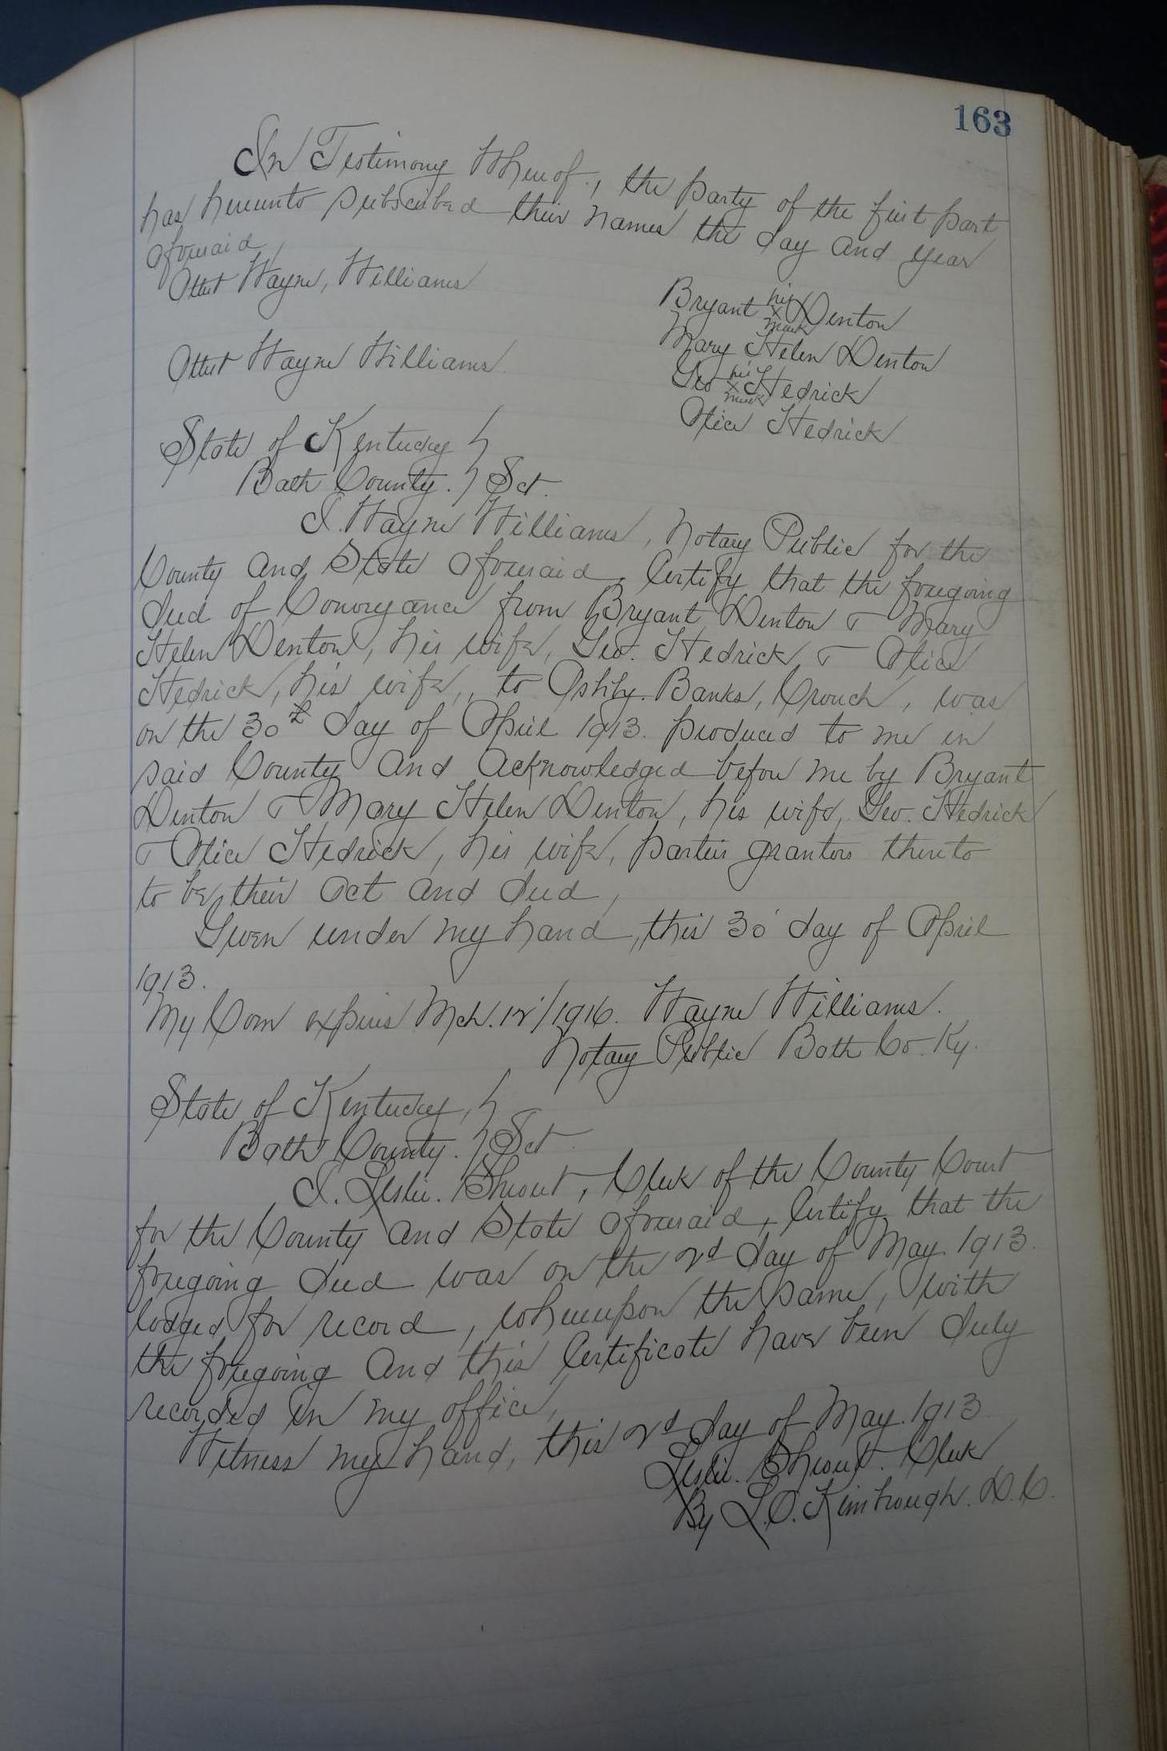 163
In Testimony Whereof, the party of the first part
has hereunto subscribed their names the day and year
aforesaid,
Attest Wayne, Williams
Bryant his x mark Denton
Mary Helen Denton
Attest Wayne Williams
Geo his x mark Hedrick
Alice Hedrick
State of Kentucky }
Bath County. } Sct.
I. Wayne Williams, Notary Public for the
County and State aforesaid, Certify that the foregoing
deed of Conveyance from Bryant Denton & Mary
Helen Denton, his wife, Geo. Hedrick & Alice
Hedrick, his wife, to Ashby. Banks, Crouch, was
on the 30th day of April 1913. produced to me in
said County and acknowledged before me by Bryant
Denton & Mary Helen Denton, his wife, Geo. Hedrick
& Alice Hedrick, his wife, parties grantors thereto
to be their act and deed,
Given under my hand, this 30 day of April
1913.
My Com expires Mch. 12/1916. Wayne Williams.
Notary Public Bath Co. Ky.
State of Kentucky, }
Bath County. } Sct
I. Leslie. Shrout, Clerk of the County Court
for the County and State aforesaid, Certify that the
foregoing deed was on the 2nd day of May. 1913.
lodged for record, whereupon the same, with
the foregoing and this Certificate have been duly
recorded in my office,
Witness my hand, this 2nd day of May. 1913
Leslie. Shrout. Clerk
By L.O. Kimbrough. D.C.